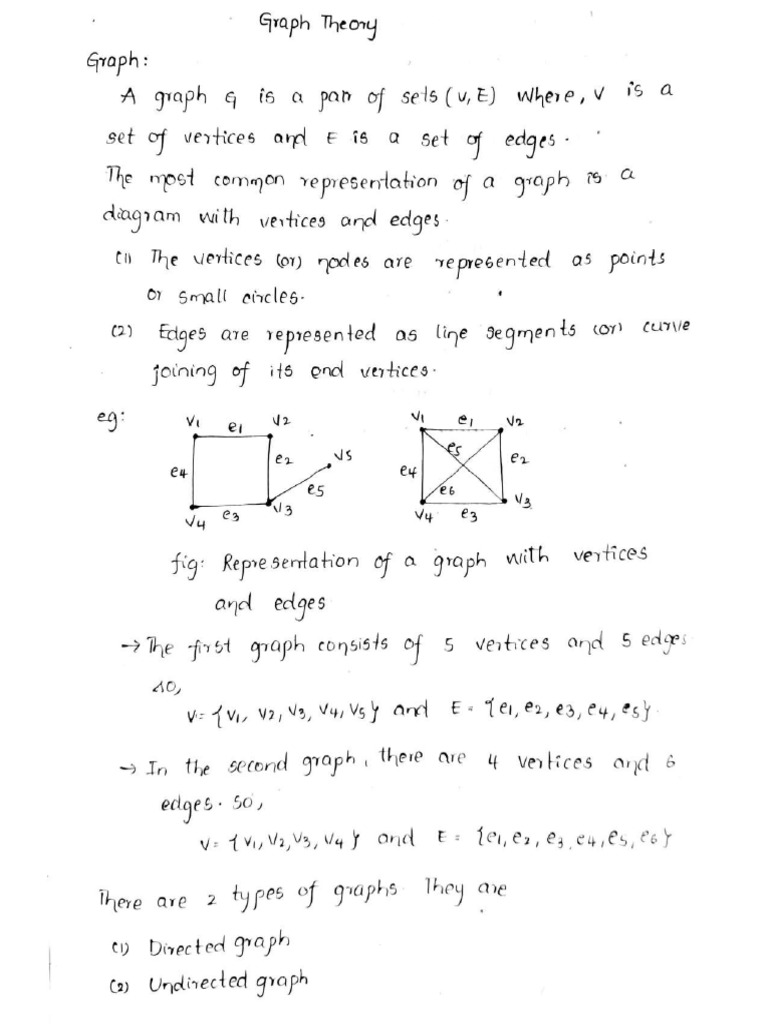 Graph Theory
Graph:
A graph G is a pair of sets (V, E) where, V is a
set of vertices and E is a set of edges.
The most common representation of a graph is a
diagram with vertices and edges.
(1) The vertices (or) nodes are represented as points
or small circles.
(2) Edges are represented as line segments (or) curve
joining of its end vertices.
eg:
V1 e1 V2
e4 e2 V5
e5
V4 e3 V3
V1 e1 V2
e5
e4 e2
e6
V4 e3 V3
fig: Representation of a graph with vertices
and edges
→ The first graph consists of 5 vertices and 5 edges
so,
V = {V1, V2, V3, V4, V5} and E = {e1, e2, e3, e4, e5}.
→ In the second graph, there are 4 vertices and 6
edges. so,
V = {V1, V2, V3, V4} and E = {e1, e2, e3, e4, e5, e6}
There are 2 types of graphs. They are
(1) Directed graph
(2) Undirected graph